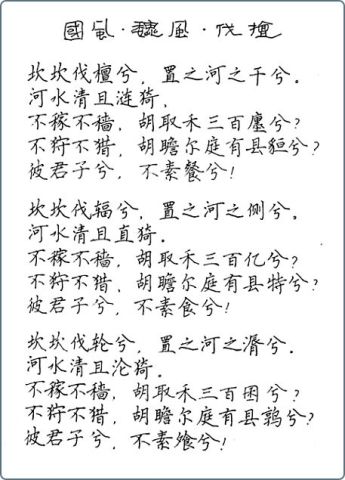 國風·魏風·伐檀
坎坎伐檀兮，置之河之干兮。
河水清且涟猗，
不稼不穑，胡取禾三百廛兮？
不狩不猎，胡瞻尔庭有县貆兮？
彼君子兮，不素餐兮！
坎坎伐辐兮，置之河之侧兮。
河水清且直猗。
不稼不穑，胡取禾三百亿兮？
不狩不猎，胡瞻尔庭有县特兮？
彼君子兮，不素食兮！
坎坎伐轮兮，置之河之漘兮。
河水清且沦猗。
不稼不穑，胡取禾三百囷兮？
不狩不猎，胡瞻尔庭有县鹑兮？
彼君子兮，不素飧兮！